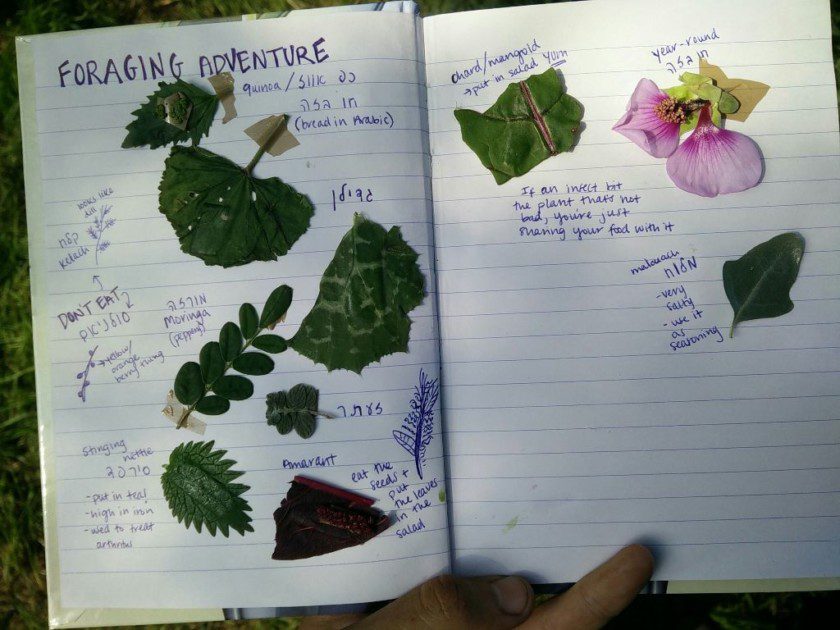 FORAGING ADVENTURE
quinoa / כף אווז
חובזה
(bread in Arabic)
looks like
dill
kelach
גדילן
DON'T EAT
סולניום
yellow/
orange
berry thing
מורינגה
Moringa
(peppery)
זעתר
stinging
nettle
סירפד
- put in tea!
- high in iron
- used to treat
arthritus
Amarant
eat the
seeds +
put
the leaves
in the
salad
chard/mangold
→ put in salad yum
year-round
חובזה
If an insect bit
the plant thats not
bad, you're just
sharing your food with it
maluach
מלוח
- very
salty
- use it
as
seasoning